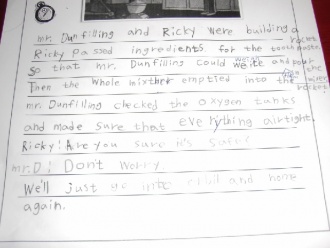 mr. Dunfilling and Ricky were building a rocket
Ricky Passed ingredients for the toothpaste
So that mr. Dunfilling could and
Then the whole mixther emptied into the
rocket
mr. Dunfilling checked the oxygen tanks
and made sure that everything airtight.
Ricky: Are you sure it's safe?
mr. D: Don't worry
We'll just go into and none
again.